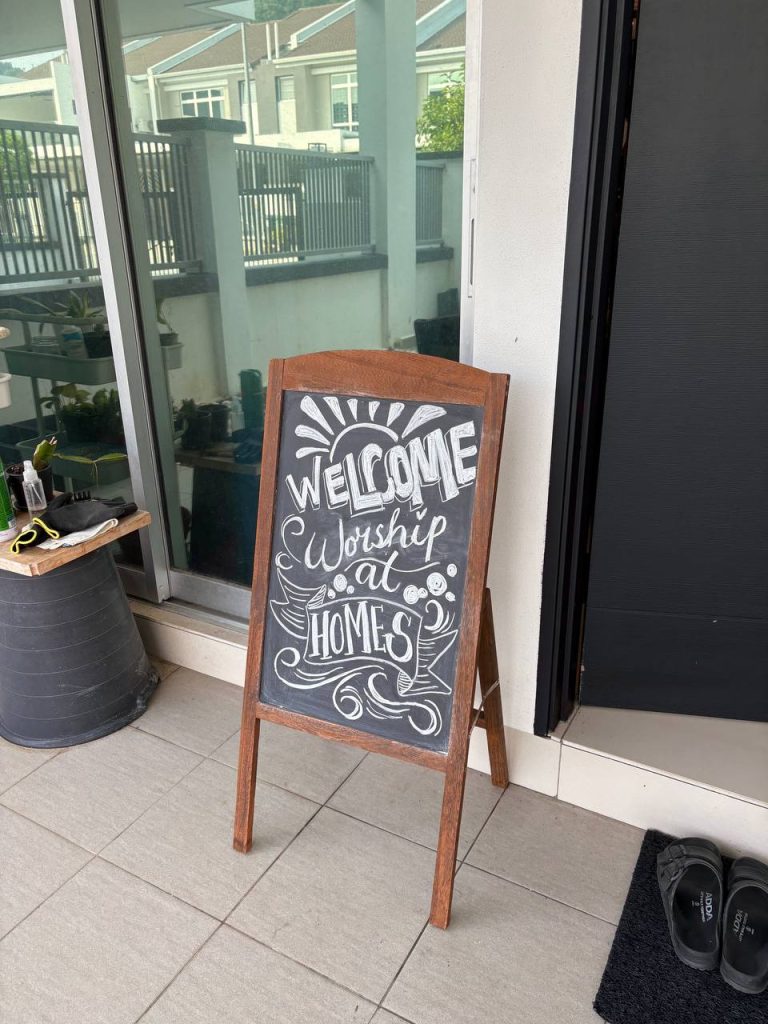 WELCOME
Worship
at
HOMES
ADDA